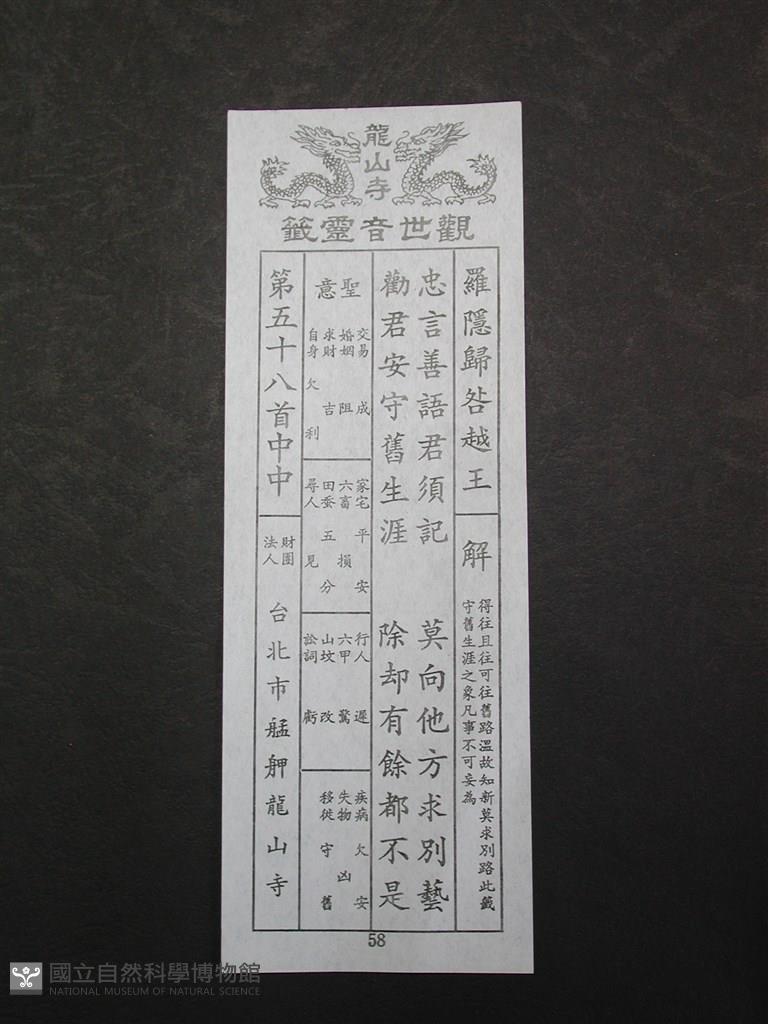 龍山寺
觀世音靈籤
羅隱歸咎越王
解
得往且往可往舊路溫故知新莫求別路此籤
守舊生涯之象凡事不可妄為
忠言善語君須記 莫向他方求別藝
勸君安守舊生涯 除却有餘都不是
聖意
交易 成
婚姻 阻
求財 吉
自身 欠利
家宅 平安
六畜 損
田蚕 五分
尋人 見
行人 遲
六甲 驚
山坟 改
訟詞 虧
疾病 欠安
失物 凶
移徙 守舊
第五十八首中中
財團法人 台北市艋舺龍山寺
58
國立自然科學博物館
NATIONAL MUSEUM OF NATURAL SCIENCE